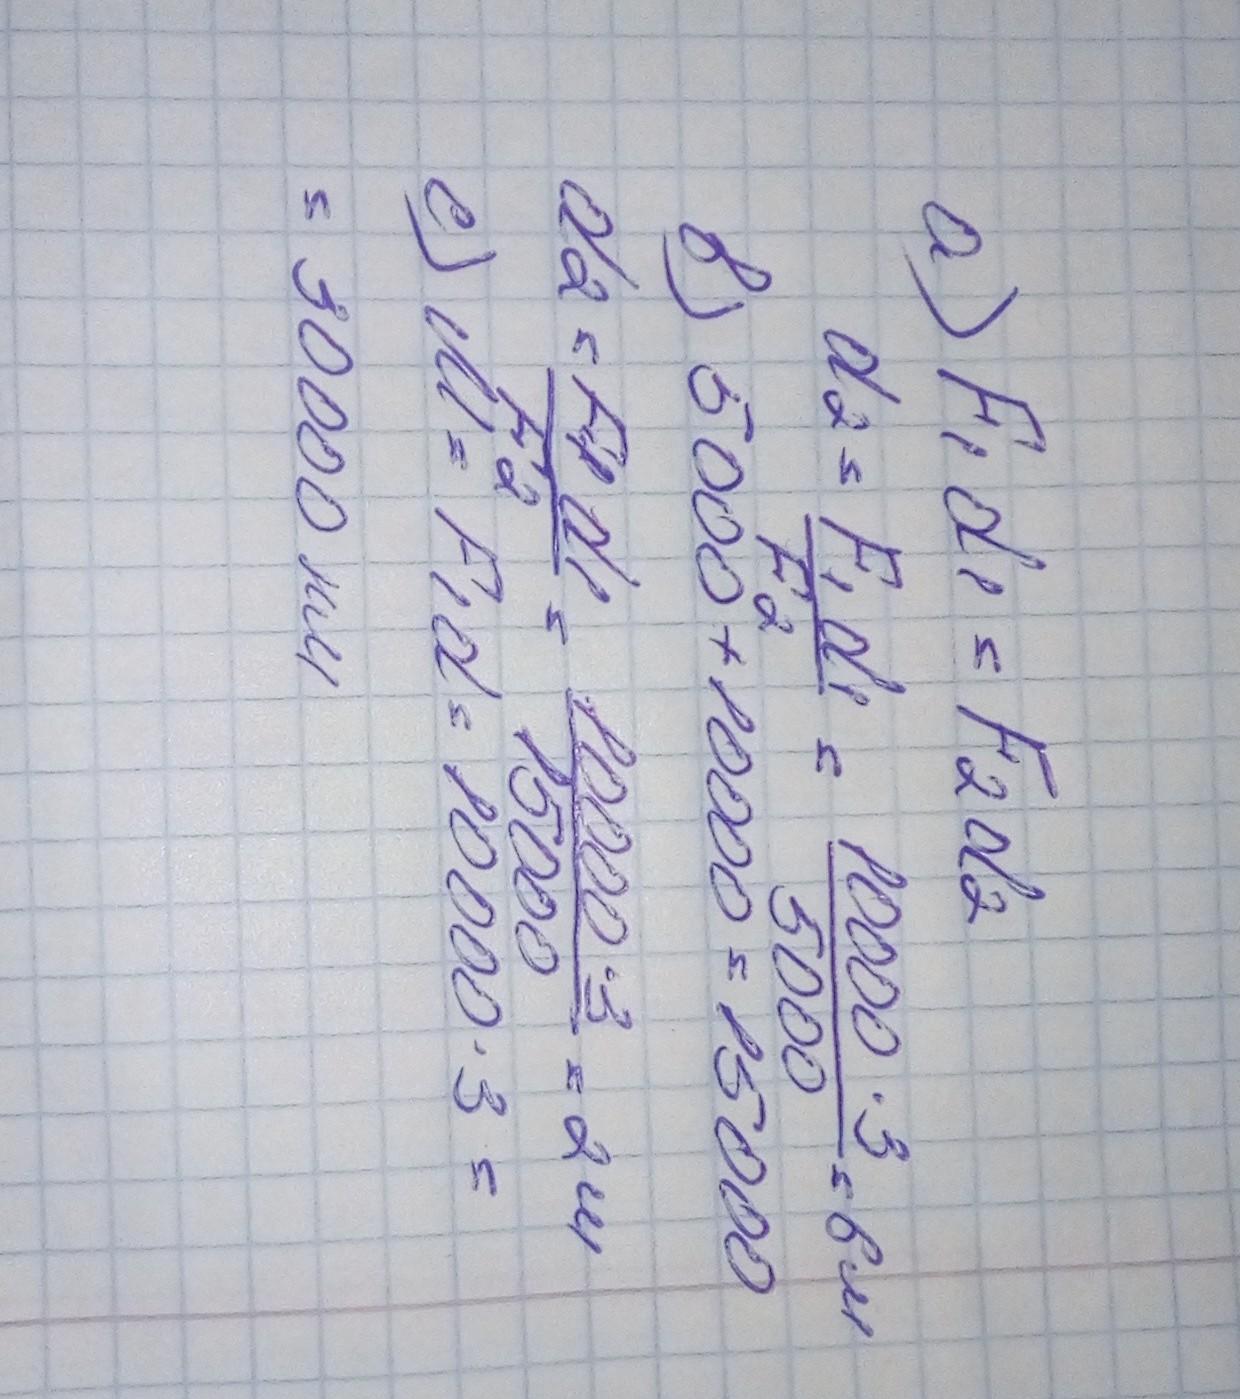 а) F₁d₁ = F₂d₂
d₂ = F₁d₁/F₂ = 10000·3/5000 = 6м
в) 5000 + 10000 = 15000
d₂ = F₁d₁/F₂ = 10000·3/15000 = 2м
с) М = F₁d = 10000·3 =
= 30000 нм